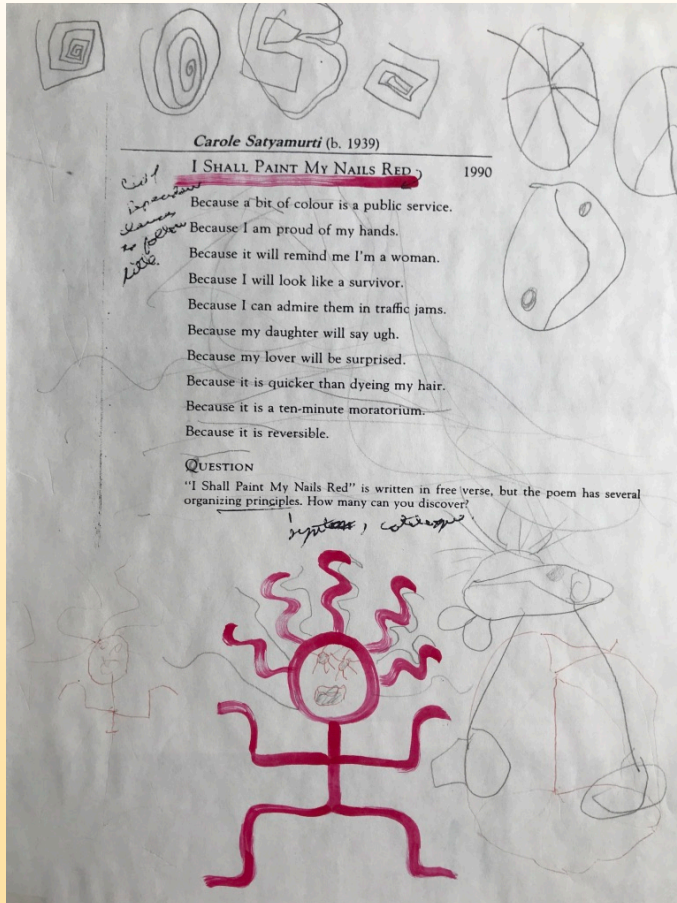 Carole Satyamurti (b. 1939)
I SHALL PAINT MY NAILS RED 1990
Because a bit of colour is a public service.
Because I am proud of my hands.
Because it will remind me I'm a woman.
Because I will look like a survivor.
Because I can admire them in traffic jams.
Because my daughter will say ugh.
Because my lover will be surprised.
Because it is quicker than dyeing my hair.
Because it is a ten-minute moratorium.
Because it is reversible.
QUESTION
"I Shall Paint My Nails Red" is written in free verse, but the poem has several
organizing principles. How many can you discover?
to follow
title.